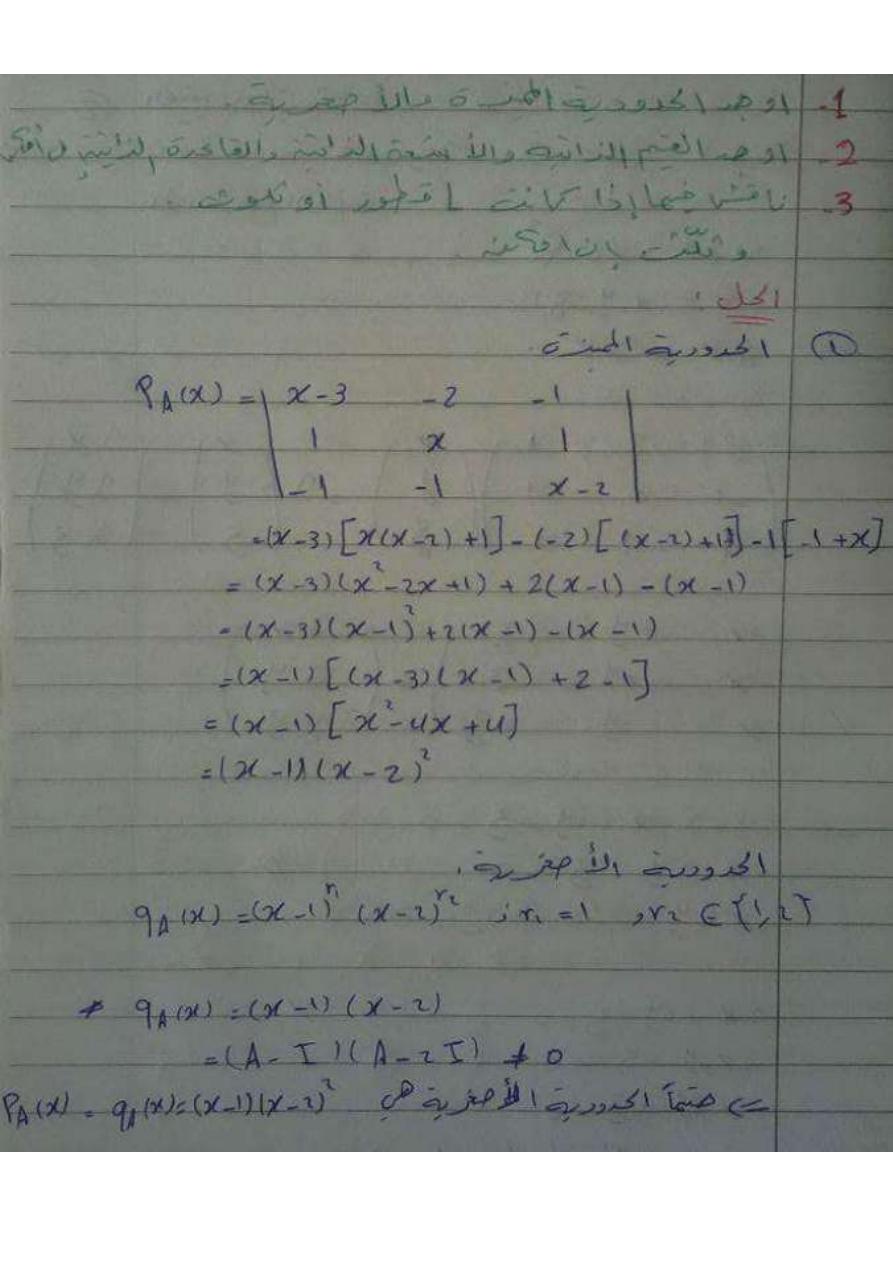 1- اوجد الحدودية المميزة والأصغرية.
2- اوجد القيم الذاتية والأشعة الذاتية والقاعدة الذاتية إن أمكن
3- ناقش فيما إذا كانت A قطور أو تكون
وثلّث بإن امكن.
الحل:
① الحدودية المميزة
P_A(x) = | x-3 -2 -1 |
| 1 x 1 |
| -1 -1 x-2 |
=(x-3)[x(x-2)+1]-(-2)[(x-2)+1]-1[-1+x]
= (x-3)(x²-2x+1) + 2(x-1) - (x-1)
= (x-3)(x-1)²+2(x-1)-(x-1)
=(x-1)[(x-3)(x-1)+2-1]
= (x-1)[x²-4x+4]
=(x-1)(x-2)²
الحدودية الأصغرية.
q_A(x)=(x-1)^r₁ (x-2)^r₂ ; r₁=1 , r₂ ∈ {1,2}
* q_A(x) = (x-1)(x-2)
=(A-I)(A-2I) ≠ 0
⇐ حتماً الحدودية الأصغرية هي P_A(x) = q_A(x)=(x-1)(x-2)²